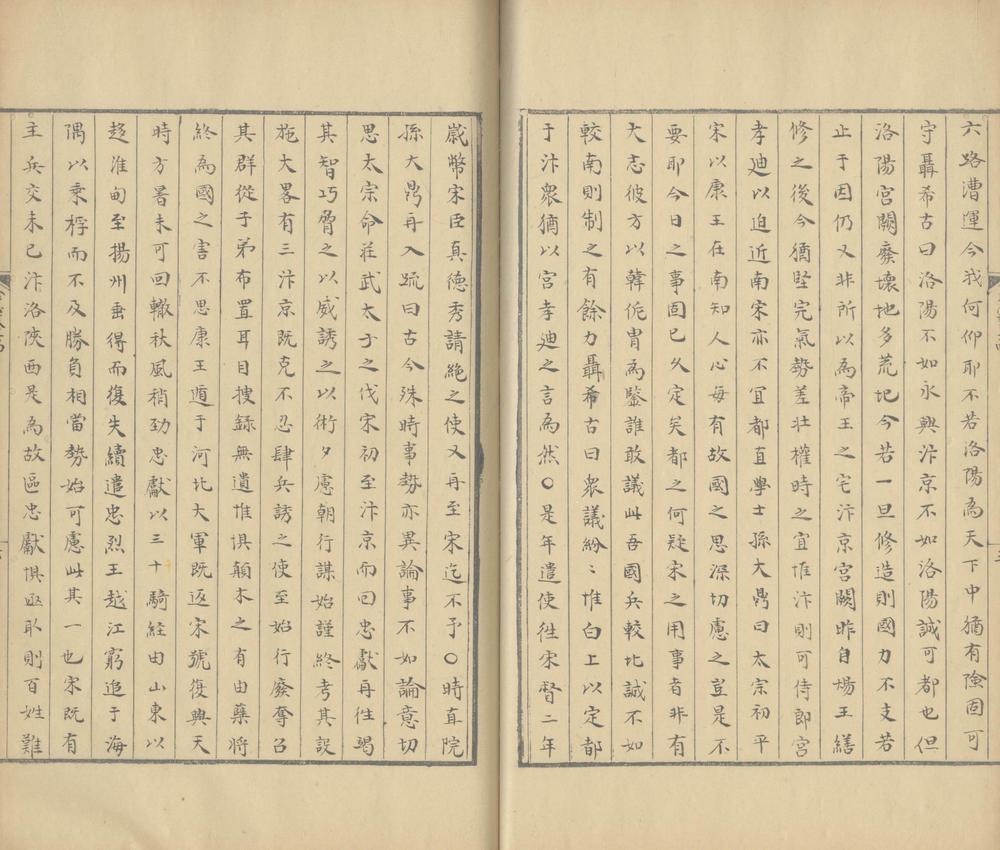 六路漕運今我何仰耶不若洛陽為天下中猶有險固可
守聶希古曰洛陽不如永興汴京不如洛陽誠可都也但
洛陽宮闕廢壞地多荒圮今若一旦修造則國力不支若
止于因仍又非所以為帝王之宅汴京宮闕昨自煬王繕
修之後今猶堅完氣勢差壮權時之宜惟汴則可侍郎宮
孝迪以迫近南宋亦不宜都直學士孫大鼎曰太宗初平
宋以康王在南知人心每有故國之思深切慮之豈是不
要耶今日之事固已久定矣都之何疑宋之用事者非有
大志彼方以韓侂胄為鑒誰敢議此吾國兵較北誠不如
較南則制之有餘力聶希古曰衆議紛〻惟白上以定都
于汴衆猶以宮孝迪之言為然〇是年遣使徃宋督二年
歲幣宋臣真德秀請絶之使又再至宋迄不予〇時直院
孫大鼎再入疏曰古今殊時事勢亦異論事不如論意切
思太宗命莊武太子之伐宋初至汴京而回忠獻再徃竭
其智巧脅之以威誘之以術夕慮朝行謀始謹終考其設
施大畧有三汴京既克不忍肆兵誘之使至始行廢奪召
其群從子弟布置耳目搜録無遺惟惧顛木之有由蘖將
終為國之害不思康王遁于河北大軍既返宋號復興天
時方暑未可回轍秋風稍勁忠獻以三十騎経由山東以
趍淮甸至揚州垂得而復失續遣忠烈王越江窮追于海
隅以乗桴而不及勝負相當勢始可慮此其一也宋既有
主兵交未已汴洛陜西是為故區忠獻惧亟取則百姓難